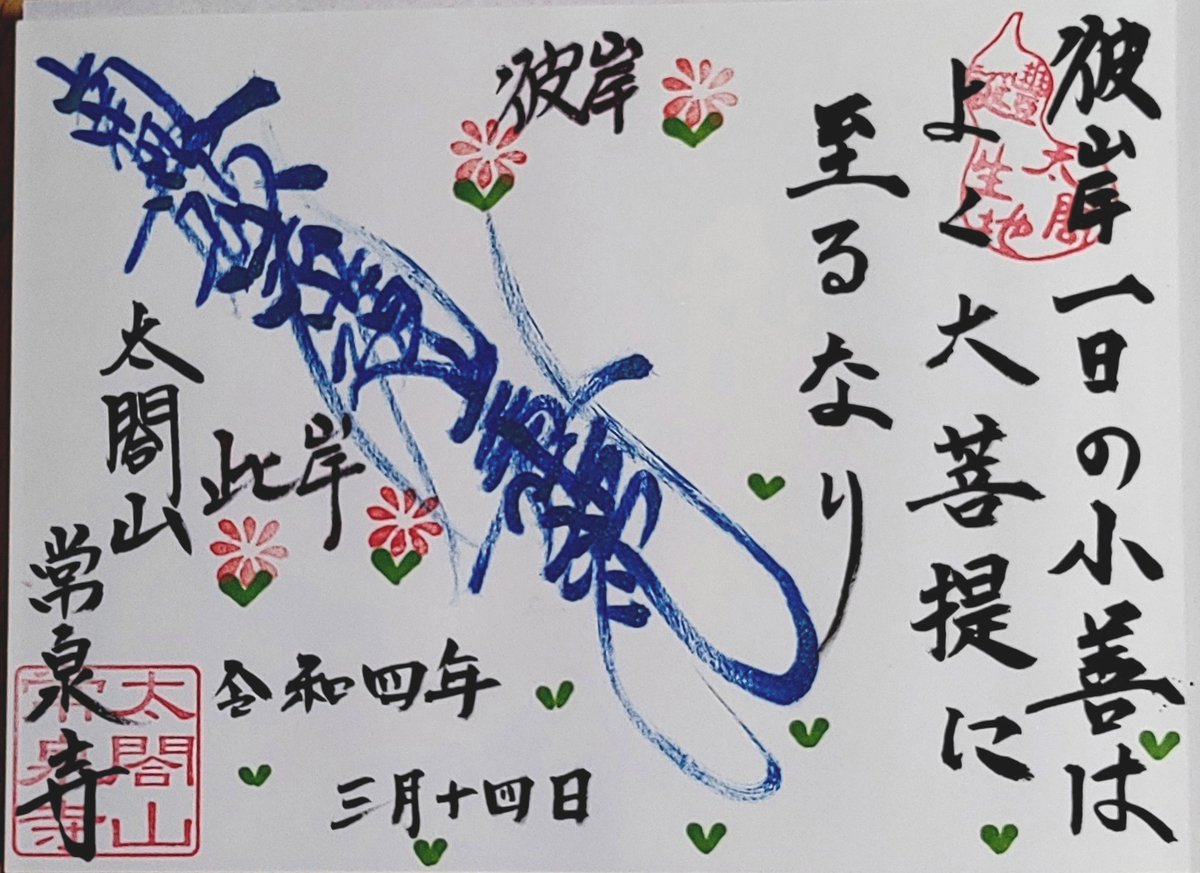 彼岸一日の小善は
よく大菩提に
至るなり
豐太閤
誕生地
彼岸
南無妙法蓮華経
此岸
太閤山
常泉寺
令和四年
三月十四日
太閤山
常泉寺